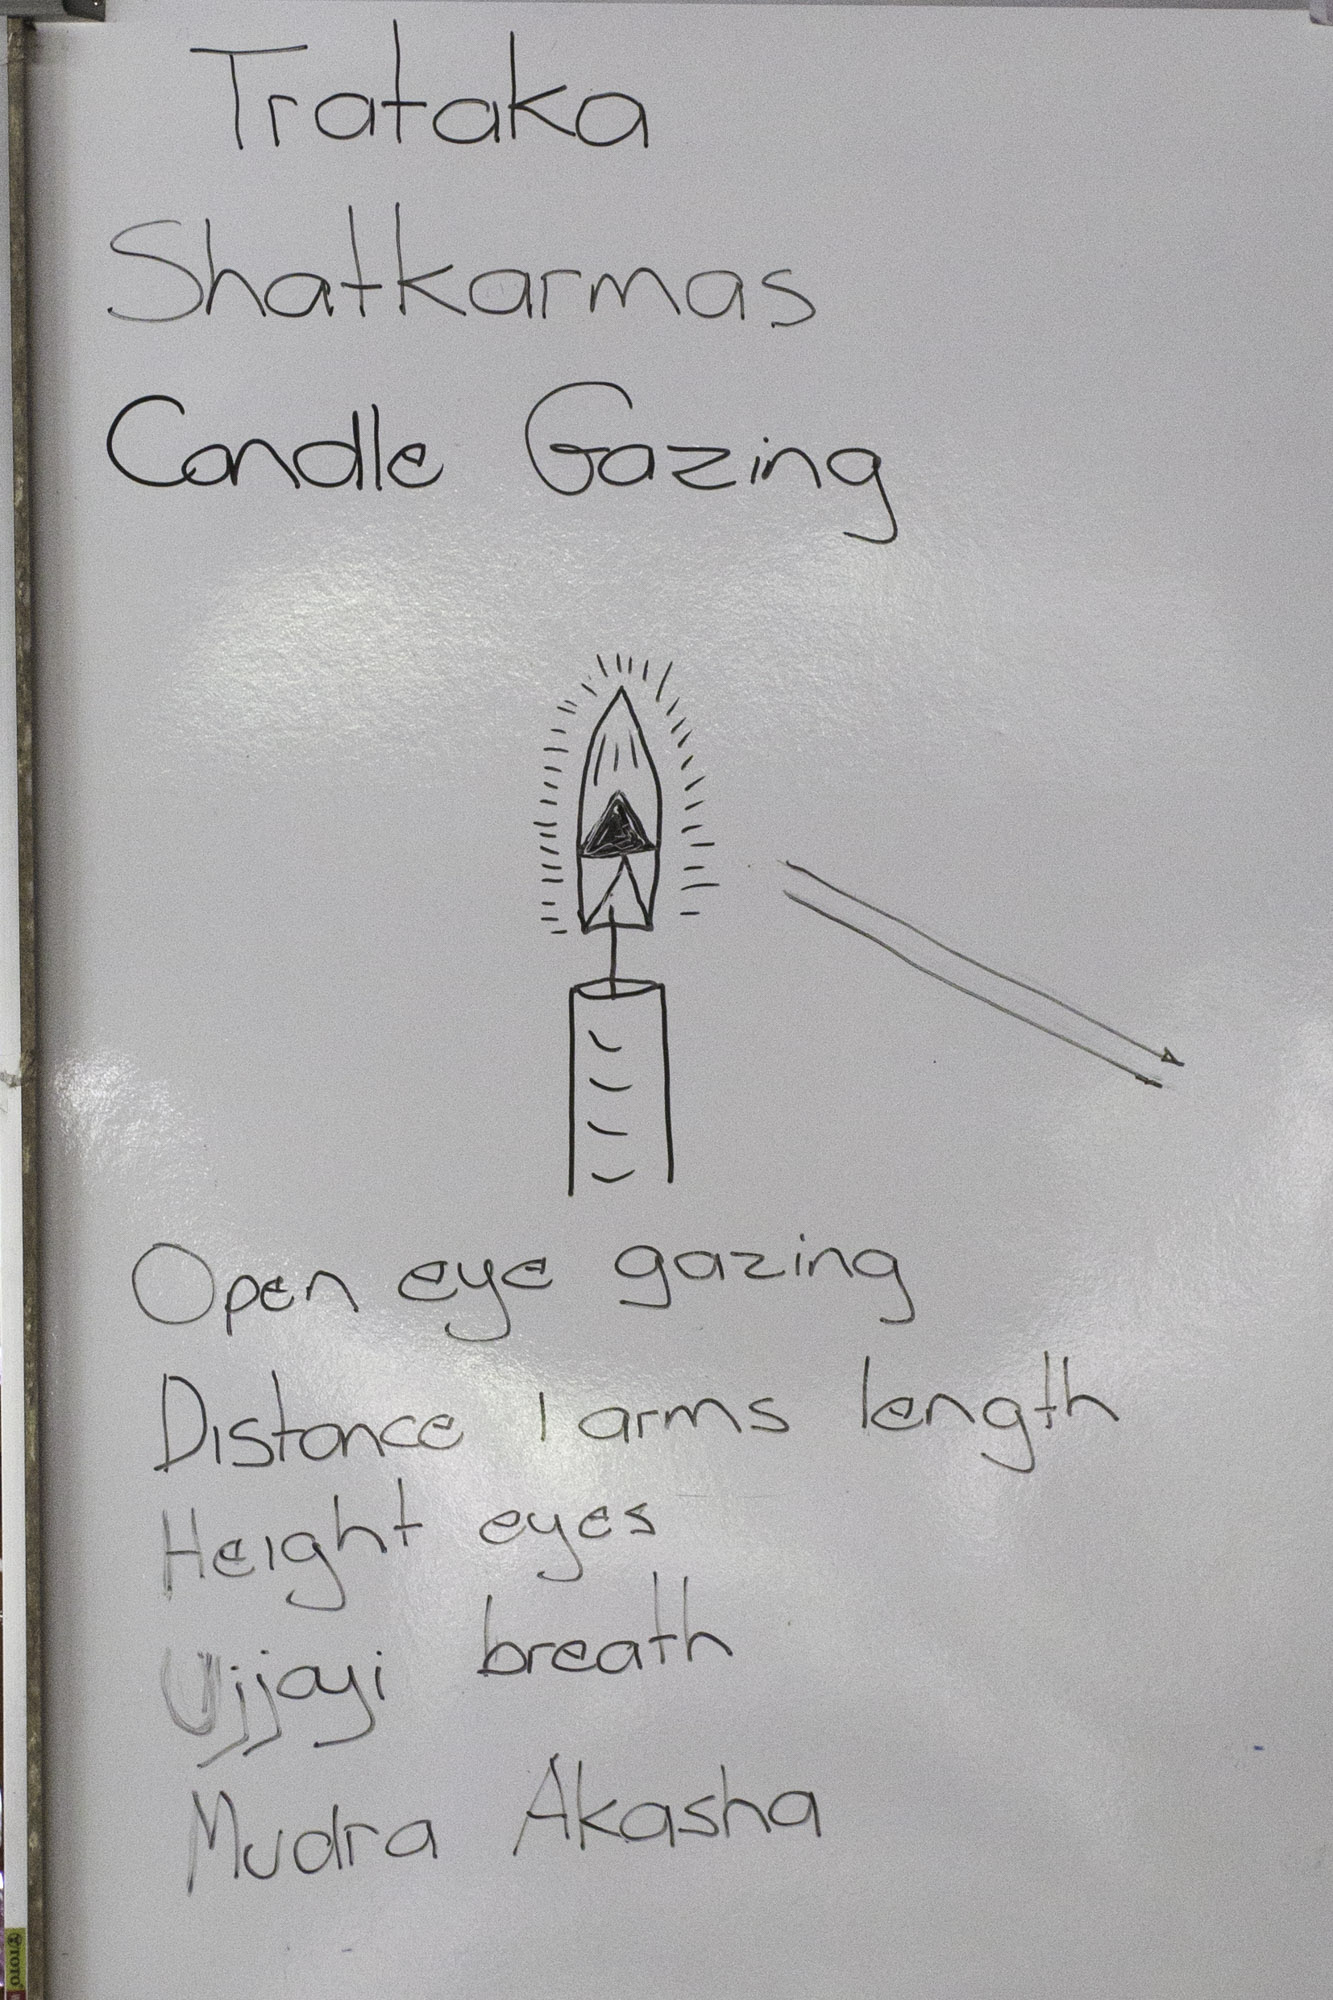 Trataka
Shatkarmas
Candle Gazing
Open eye gazing
Distance 1 arms length
Height eyes
Ujjayi breath
Mudra Akasha
TOTO